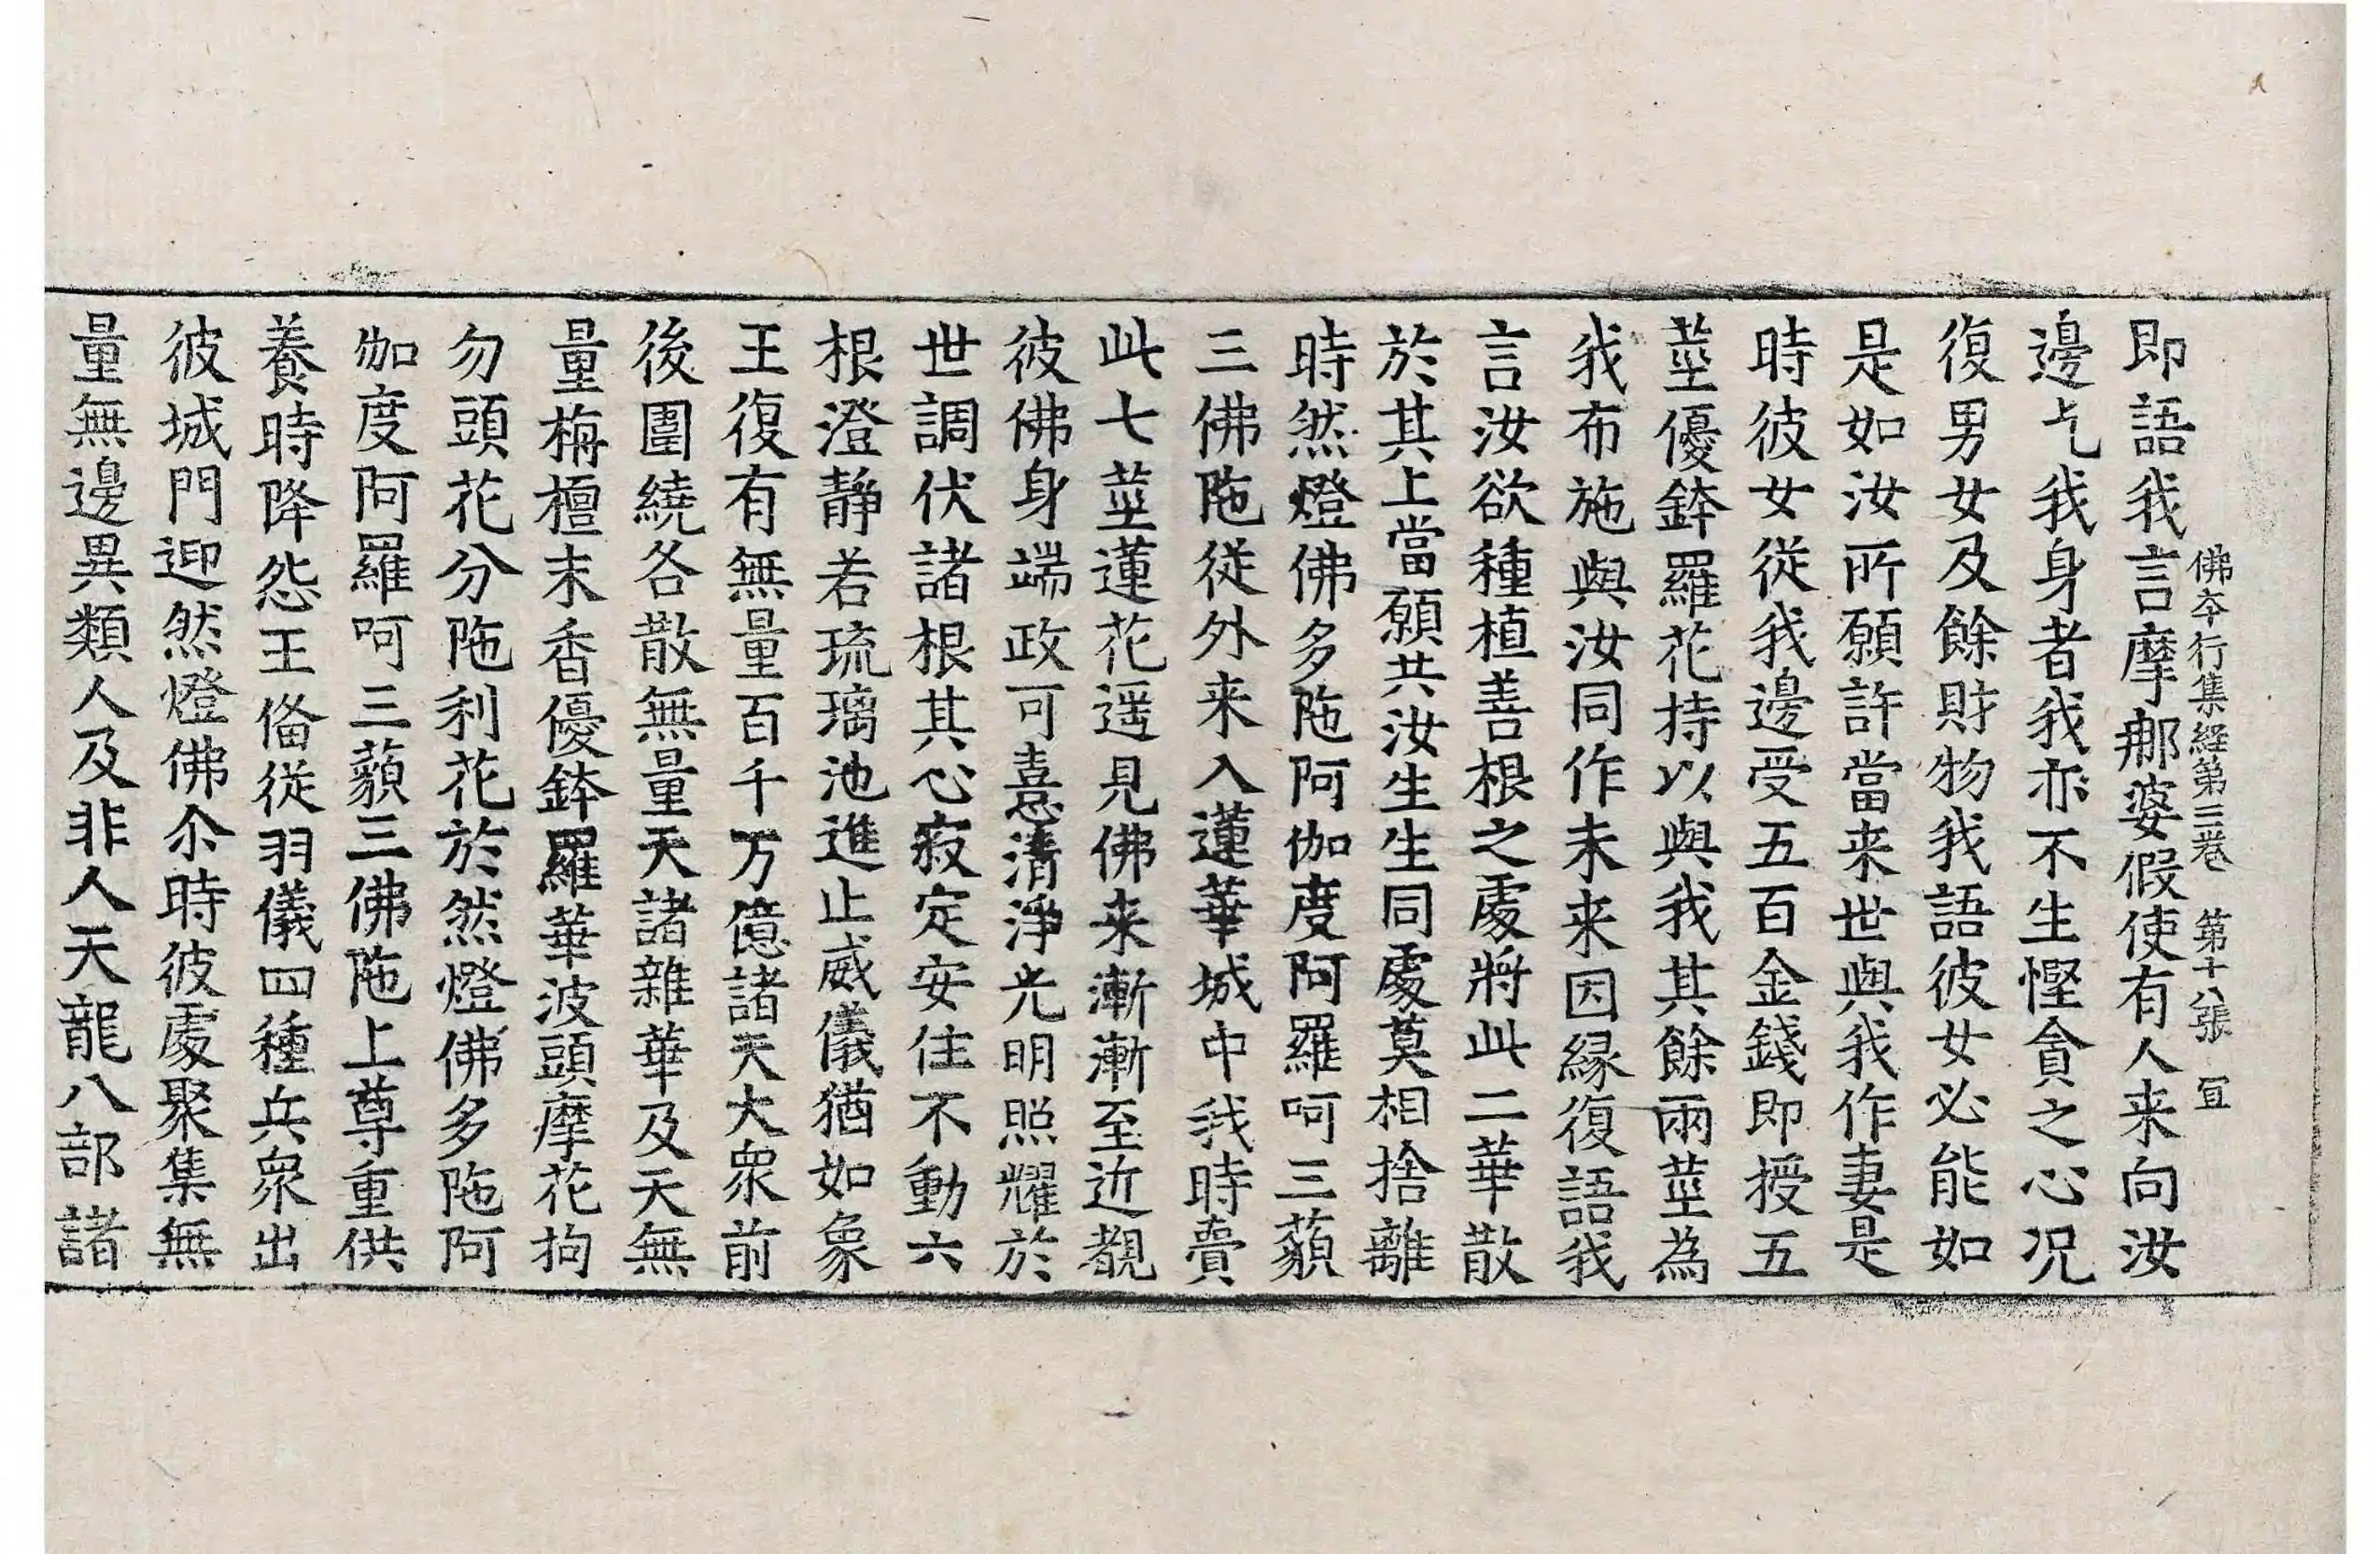 佛夲行集経第三卷 第十八張 冝
即語我言摩那婆假使有人来向汝
邊乞我身者我亦不生慳貪之心况
復男女及餘財物我語彼女必能如
是如汝所願許當来世與我作妻是
時彼女從我邊受五百金錢即授五
莖優鉢羅花持以與我其餘兩莖為
我布施與汝同作未来因緣復語我
言汝欲種植善根之處將此二華散
於其上當願共汝生生同處莫相捨離
時然燈佛多陁阿伽度阿羅呵三藐
三佛陁從外来入蓮華城中我時賷
此七莖蓮花遥見佛来漸漸至近覩
彼佛身端政可憙清淨光明照耀於
世調伏諸根其心寂定安住不動六
根澄静若琉璃池進止威儀猶如象
王復有無量百千万億諸天大衆前
後圍繞各散無量天諸雜華及天無
量栴檀末香優鉢羅華波頭摩花拘
勿頭花分陁利花於然燈佛多陁阿
伽度阿羅呵三藐三佛陁上尊重供
養時降怨王俻從羽儀四種兵衆出
彼城門迎然燈佛尒時彼處聚集無
量無邊異類人及非人天龍八部諸